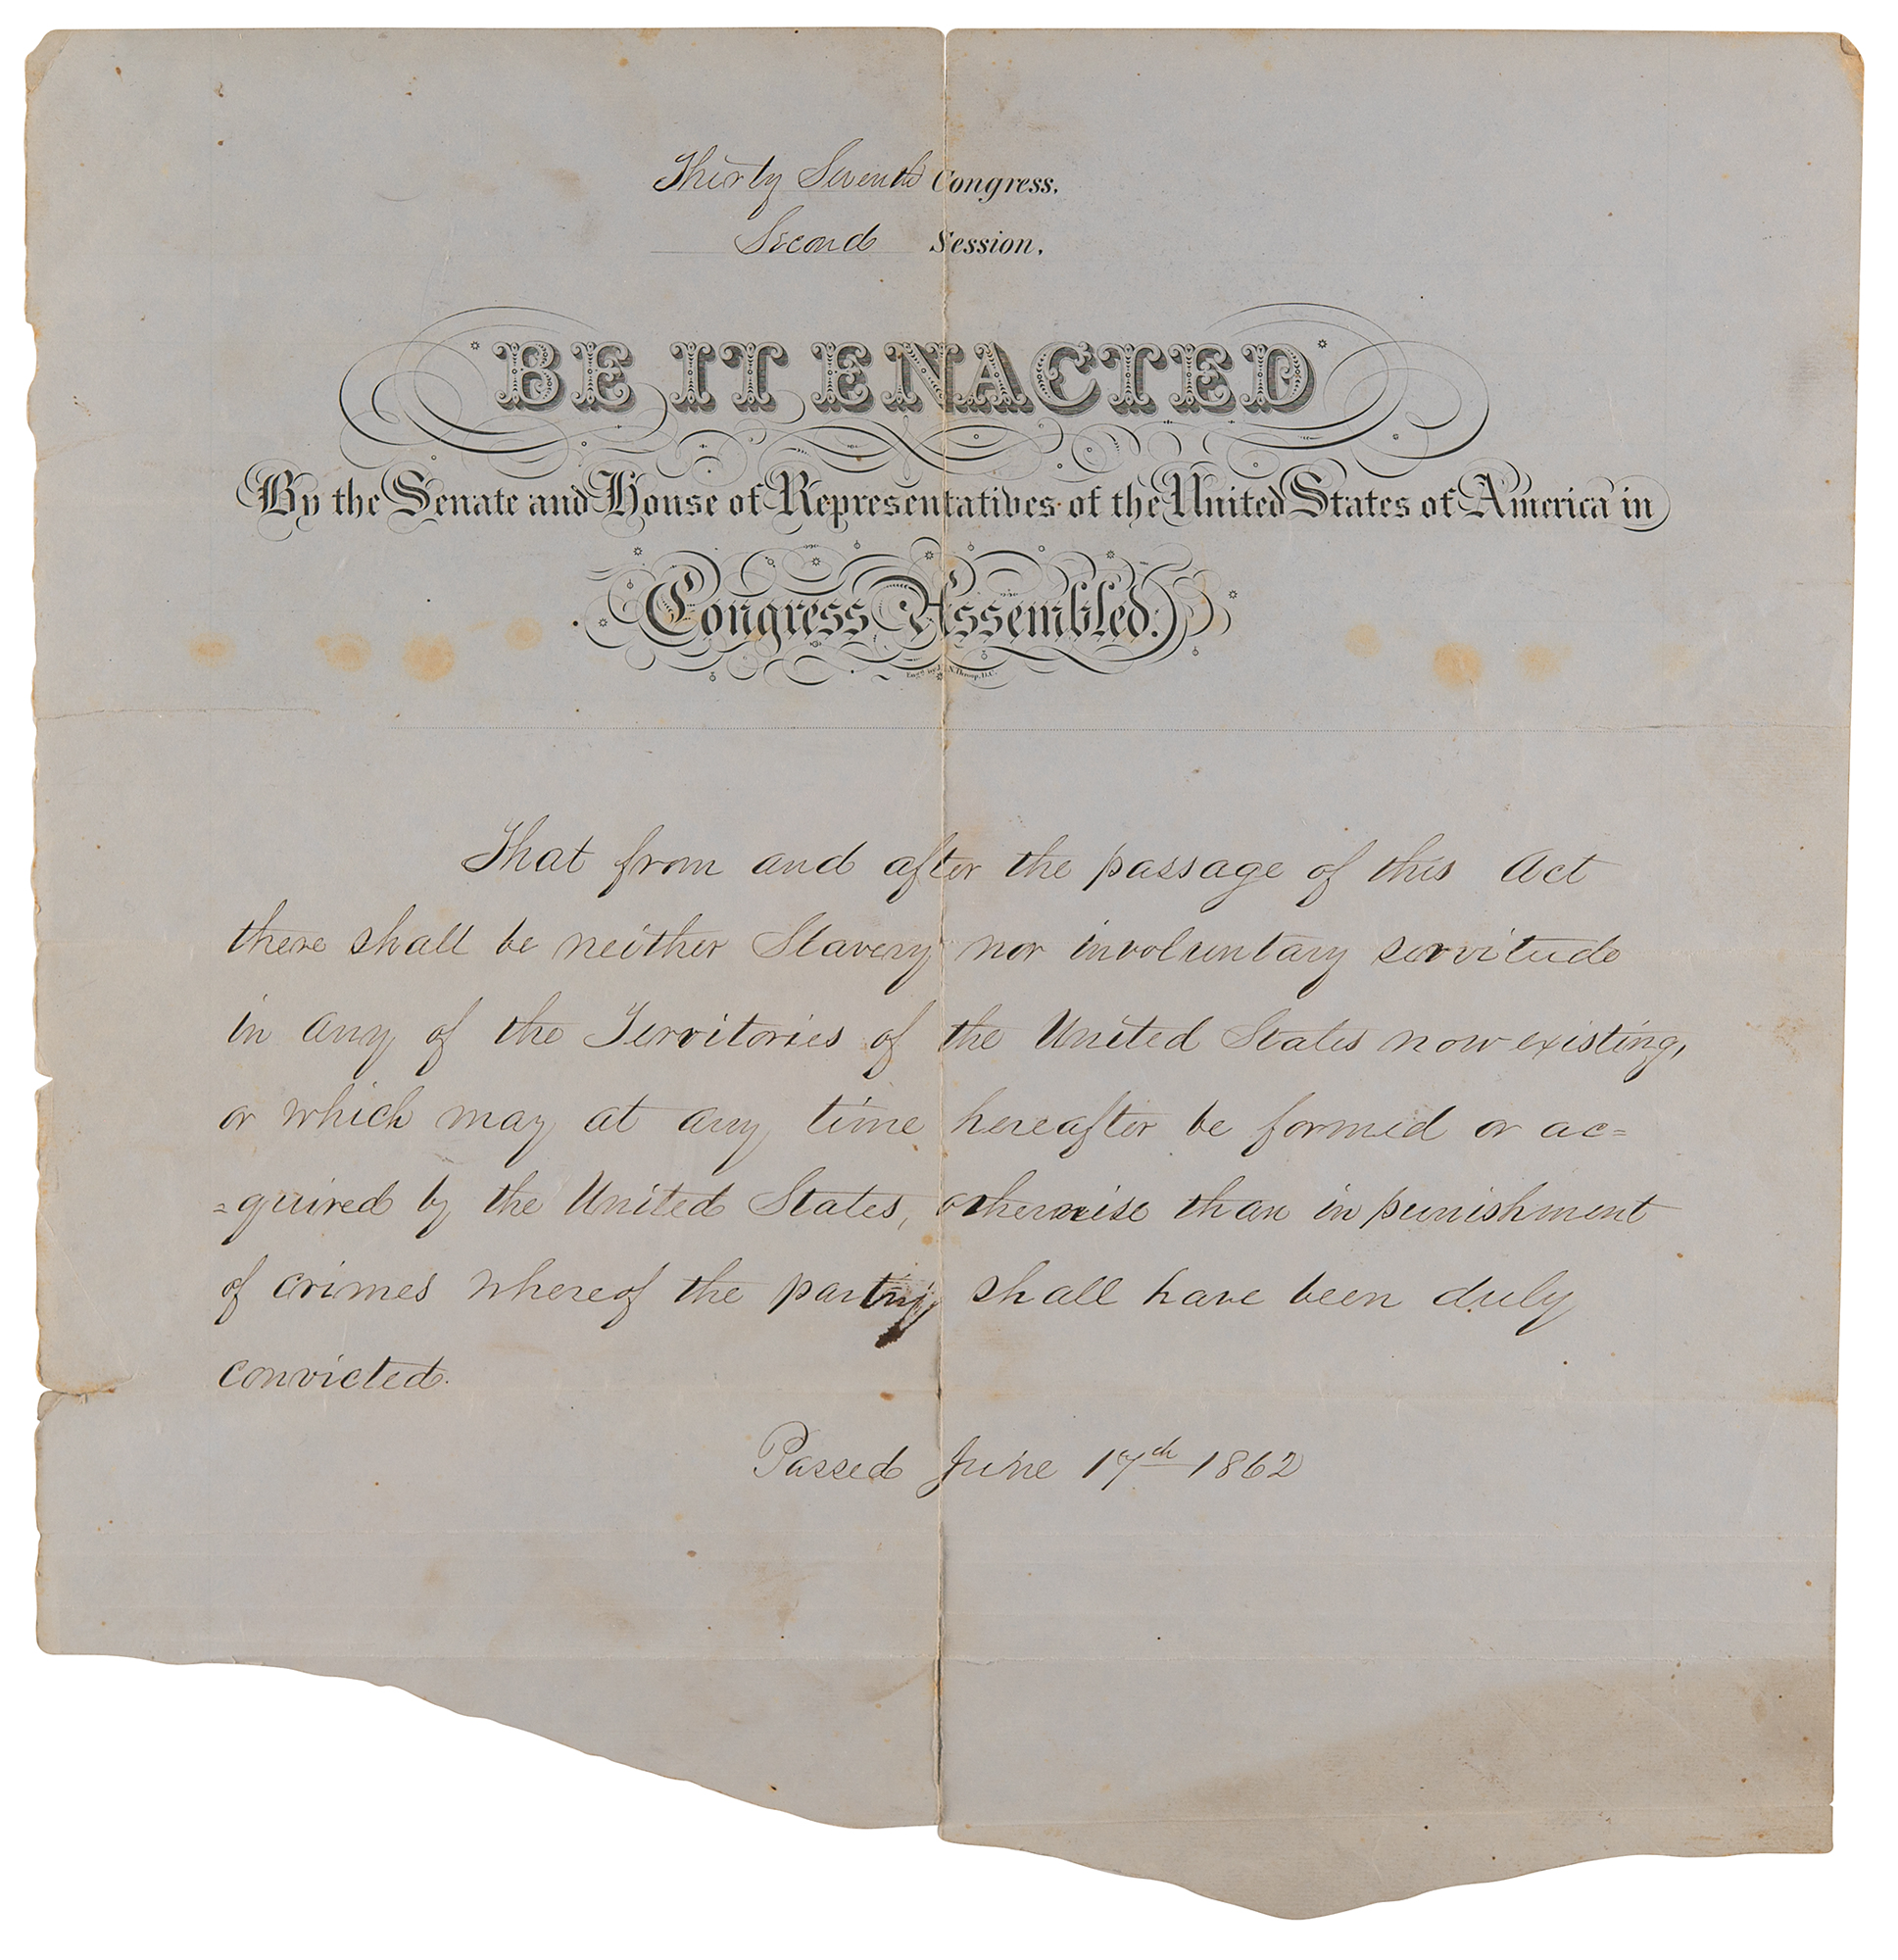 Thirty Seventh Congress.
Second Session.
BE IT ENACTED
By the Senate and House of Representatives of the United States of America in
Congress Assembled.
That from and after the passage of this Act
there shall be neither Slavery nor involuntary servitude
in any of the Territories of the United States now existing,
or which may at any time hereafter be formed or ac=
=quired by the United States, otherwise than in punishment
of crimes whereof the party shall have been duly
convicted.
Passed June 17th 1862